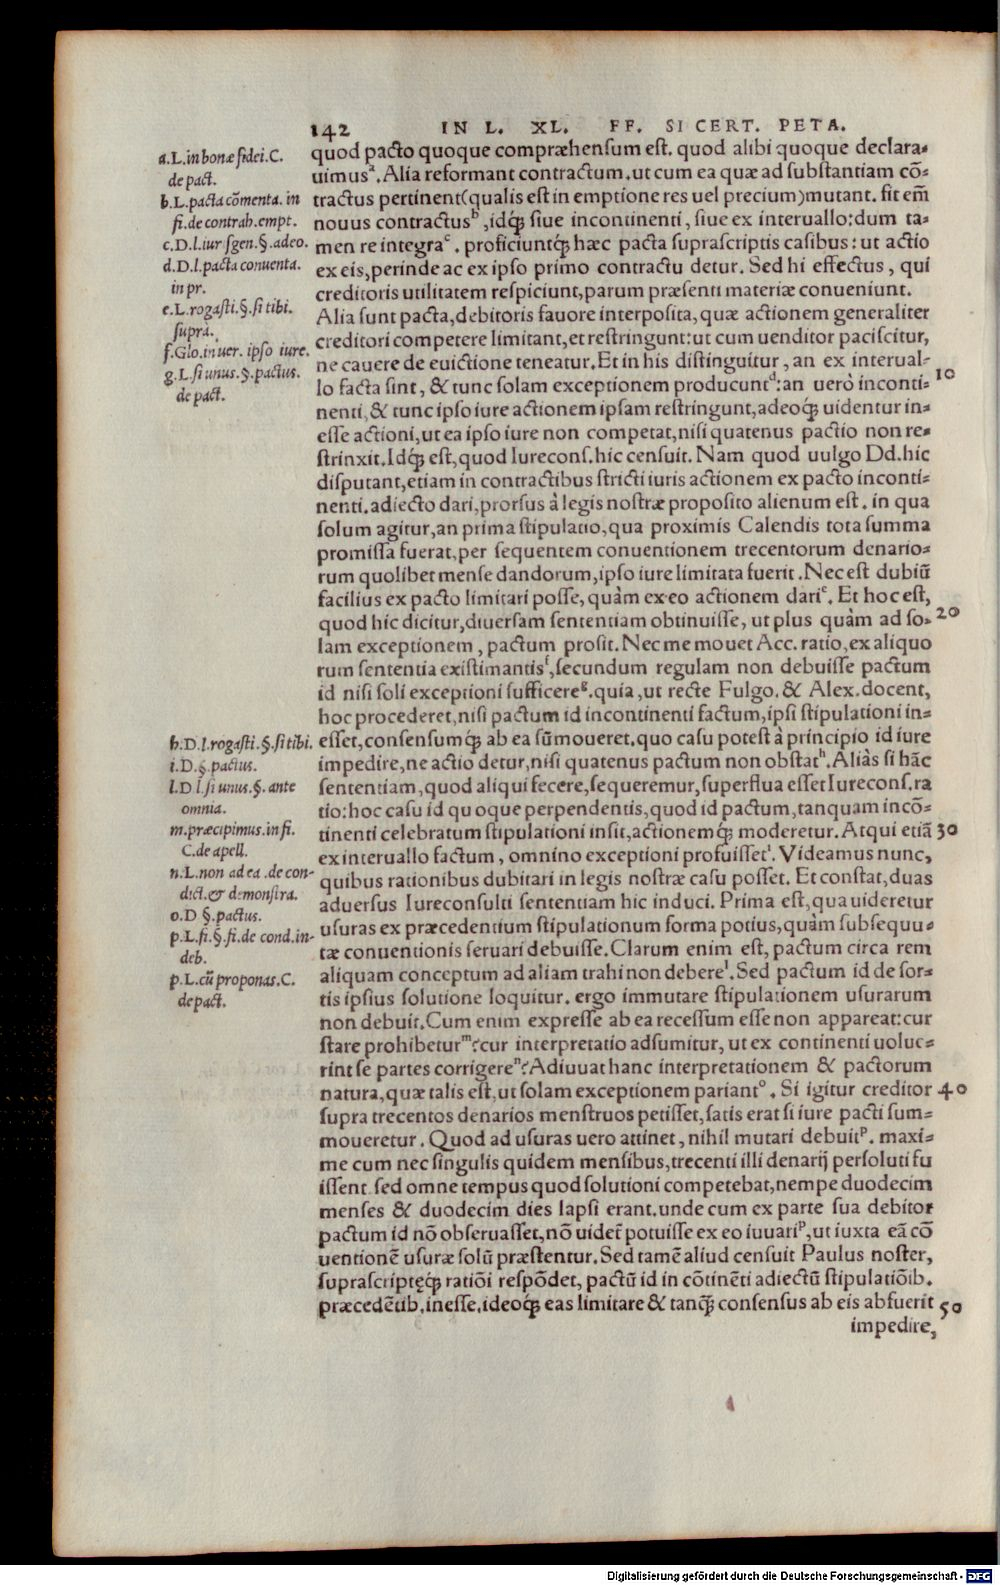 142 IN L. XL. FF. SI CERT. PETA.
quod pacto quoque compræhensum est. quod alibi quoque declara=
uimusᵃ. Alia reformant contractum. ut cum ea quæ ad substantiam cō=
tractus pertinent (qualis est in emptione res uel precium) mutant. fit em̄
nouus contractusᵇ, idq́; siue incontinenti, siue ex interuallo: dum ta=
men re integraᶜ. proficiuntq́; hæc pacta suprascriptis casibus: ut actio
ex eis, perinde ac ex ipso primo contractu detur. Sed hi effectus, qui
creditoris utilitatem respiciunt, parum præsenti materiæ conueniunt.
Alia sunt pacta, debitoris fauore interposita, quæ actionem generaliter
creditori competere limitant, et restringunt: ut cum uenditor paciscitur,
ne cauere de euictione teneatur. Et in his distinguitur, an ex interual=
lo facta sint, & tunc solam exceptionem producuntᵈ: an uerò inconti=
nenti, & tunc ipso iure actionem ipsam restringunt, adeoq́; uidentur in=
esse actioni, ut ea ipso iure non competat, nisi quatenus pactio non re=
strinxit. Idq́; est, quod Iurecons. hic censuit. Nam quod uulgo Dd. hic
disputant, etiam in contractibus stricti iuris actionem ex pacto inconti=
nenti. adiecto dari, prorsus à legis nostræ proposito alienum est. in qua
solum agitur, an prima stipulatio, qua proximis Calendis tota summa
promissa fuerat, per sequentem conuentionem trecentorum denario=
rum quolibet mense dandorum, ipso iure limitata fuerit. Nec est dubiū
facilius ex pacto limitari posse, quàm ex eo actionem dariᵉ. Et hoc est,
quod hic dicitur, diuersam sententiam obtinuisse, ut plus quàm ad so=
lam exceptionem, pactum prosit. Nec me mouet Acc. ratio, ex aliquo
rum sententia existimantisᶠ, secundum regulam non debuisse pactum
id nisi soli exceptioni sufficereᵍ. quia, ut recte Fulgo. & Alex. docent,
hoc procederet, nisi pactum id incontinenti factum, ipsi stipulationi in=
esset, consensumq́; ab ea sūmoueret. quo casu potest à principio id iure
impedire, ne actio detur, nisi quatenus pactum non obstatʰ. Aliàs si hāc
sententiam, quod aliqui fecere, sequeremur, superflua esset Iurecons. ra
tio: hoc casu id quoque perpendentis, quod id pactum, tanquam incō=
tinenti celebratum stipulationi insit, actionemq́; moderetur. Atqui etiā
ex interuallo factum, omnino exceptioni profuissetⁱ. Videamus nunc,
quibus rationibus dubitari in legis nostræ casu posset. Et constat, duas
aduersus Iureconsulti sententiam hic induci. Prima est, qua uideretur
usuras ex præcedentium stipulationum forma potius, quàm subsequu=
tæ conuentionis seruari debuisse. Clarum enim est, pactum circa rem
aliquam conceptum ad aliam trahi non debereˡ. Sed pactum id de sor=
tis ipsius solutione loquitur. ergo immutare stipulationem usurarum
non debuit. Cum enim expresse ab ea recessum esse non appareat: cur
stare prohibeturᵐ? cur interpretatio adsumitur, ut ex continenti uolue=
rint se partes corrigereⁿ? Adiuuat hanc interpretationem & pactorum
natura, quæ talis est, ut solam exceptionem pariantᵒ. Si igitur creditor
supra trecentos denarios menstruos petisset, satis erat si iure pacti sum=
moueretur. Quod ad usuras uero attinet, nihil mutari debuitᵖ. maxi=
me cum nec singulis quidem mensibus, trecenti illi denarij persoluti fu
issent. sed omne tempus quod solutioni competebat, nempe duodecim
menses & duodecim dies lapsi erant. unde cum ex parte sua debitor
pactum id nō obseruasset, nō uidet̄ potuisse ex eo iuuariᵖ, ut iuxta eā cō
uentionē usuræ solū præstentur. Sed tamē aliud censuit Paulus noster,
suprascriptęq́; ratiōi respōdet, pactū id in cōtinēti adiectū stipulatiōib.
præcedētib. inesse. ideoq́; eas limitare & tanq́; consensus ab eis abfuerit
impedire,
10
20
30
40
50
a. L. in bonæ fidei. C.
de pact.
b. L. pacta cōmenta. in
fi. de contrah. empt.
c. D. l. iur sgen. §. adeo.
d. D. l. pacta conuenta.
in pr.
e. L. rogasti. §. si tibi.
supra.
f. Glo. in uer. ipso iure.
g. L. si unus. §. pactus.
de pact.
h. D. l. rogasti. §. si tibi.
i. D. §. pactus.
l. D. l. si unus. §. ante
omnia.
m. præcipimus. in fi.
C. de apell.
n. L. non ad ea. de con-
dict. & demonstra.
o. D §. pactus.
p. L. fi. §. fi. de cond. in-
deb.
p. L. cū proponas. C.
de pact.
Digitalisierung gefördert durch die Deutsche Forschungsgemeinschaft - DFG